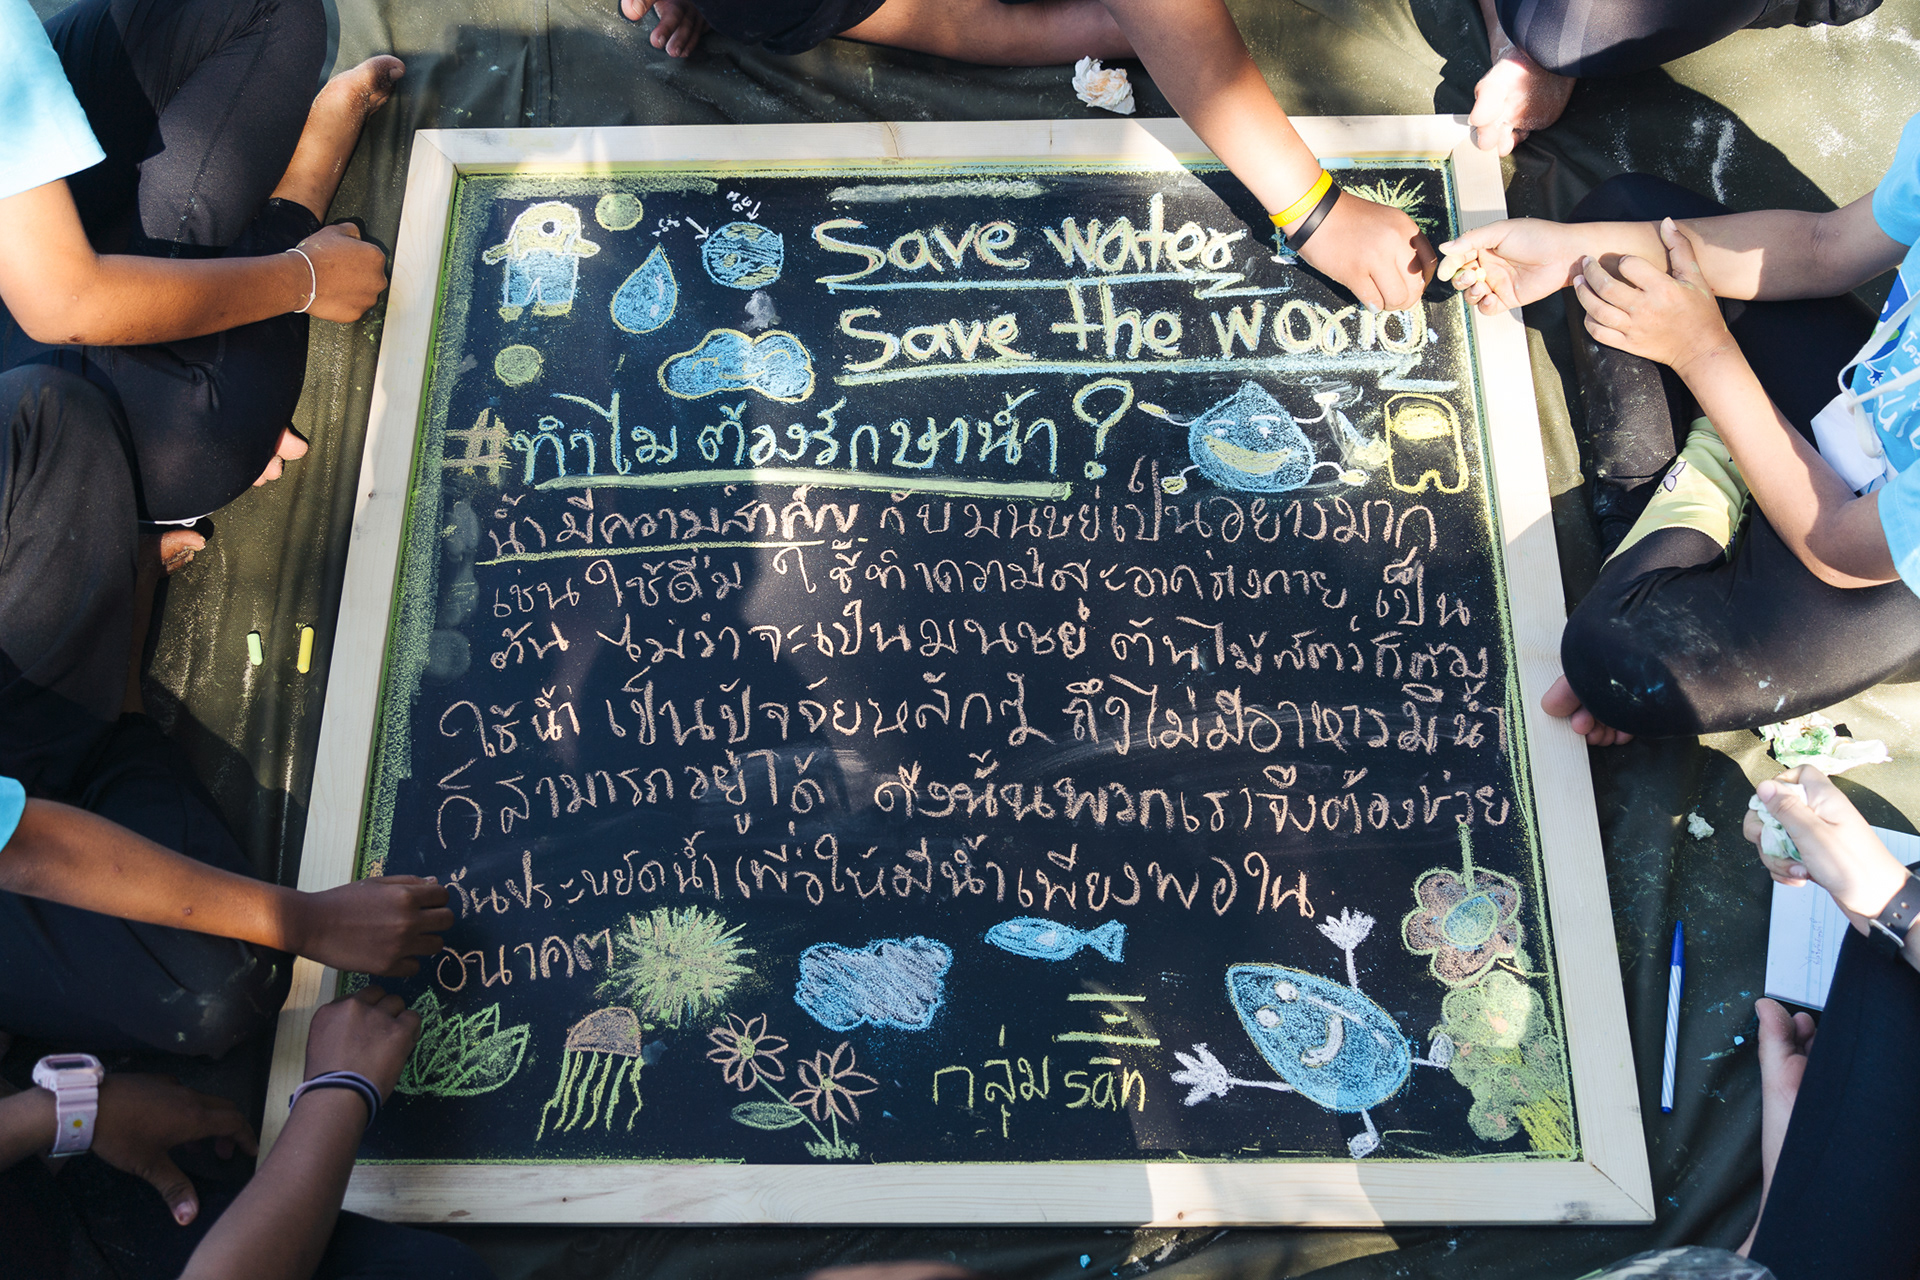 Save water
Save the world.
#ทำไมต้องรักษาน้ำ?
น้ำมีความสำคัญ กับมนุษย์เป็นอย่างมาก
เช่น ใช้ดื่ม ใช้ทำความสะอาดร่างกาย เป็น
ต้น ไม่ว่าจะเป็นมนุษย์ ต้นไม้ สัตว์ ก็ต้อง
ใช้น้ำ เป็นปัจจัยหลักๆ ถึงไม่มีอาหารมีน้ำ
ก็สามารถอยู่ได้ ดังนั้นพวกเราจึงต้องช่วย
กันประหยัดน้ำ เพื่อให้มีน้ำเพียงพอใน
อนาคต
กลุ่ม รลัก